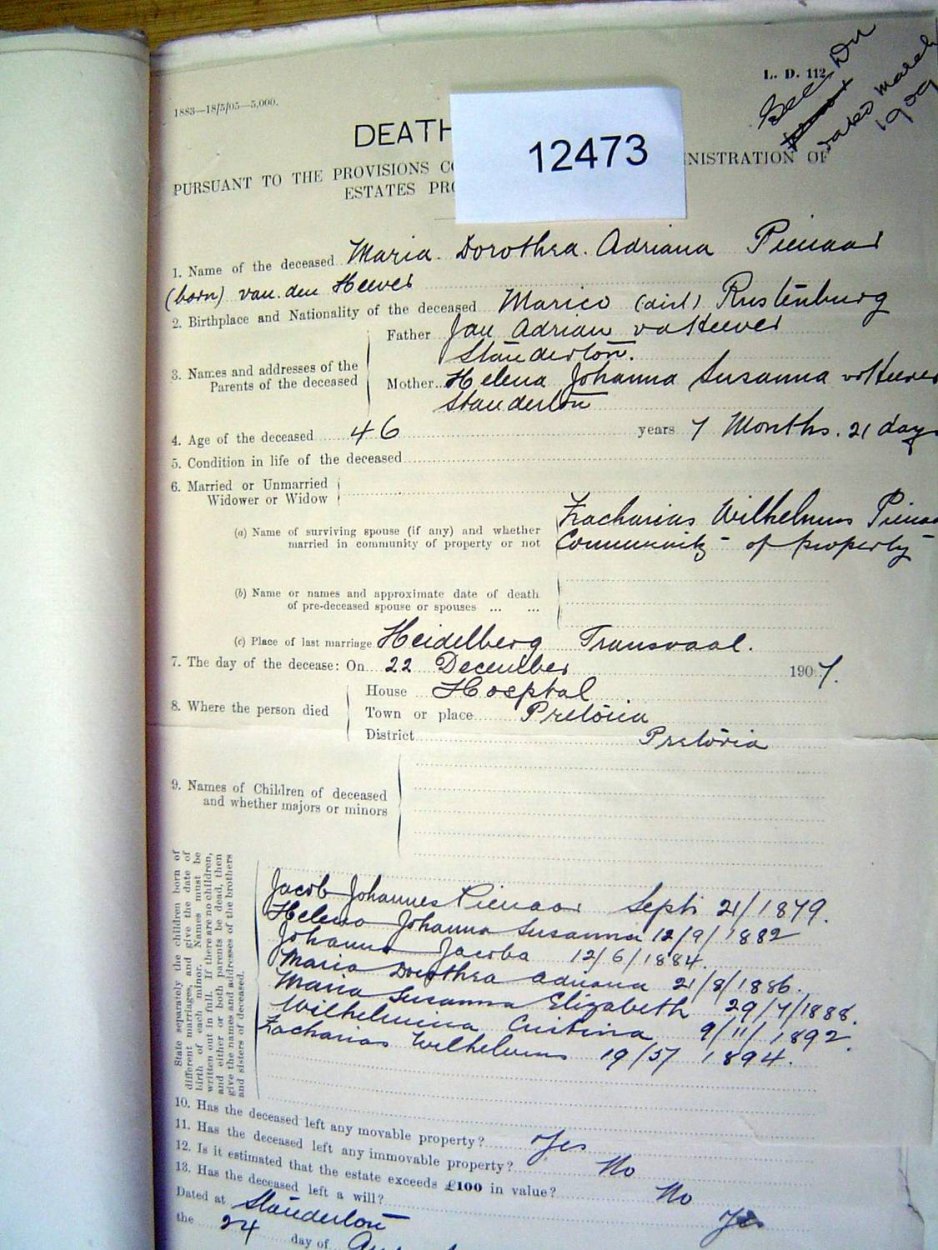 L. D. 112
1883—18/5/05—5,000.
dated march
1909
DEATH
12473
PURSUANT TO THE PROVISIONS NISTRATION OF
ESTATES
1. Name of the deceased Maria Dorothea Adriana Pienaar
(born) van den Heever
2. Birthplace and Nationality of the deceased Marico (dist) Rustenburg
3. Names and addresses of the Parents of the deceased
Father Jan Adrian vd Heever
Standerton.
Mother Helena Johanna Susanna vd Heever
Standerton
4. Age of the deceased 46 years 7 Months. 21 days
5. Condition in life of the deceased
6. Married or Unmarried
Widower or Widow
(a) Name of surviving spouse (if any) and whether Zacharias Wilhelmus Pienaa
married in community of property or not Community of property
(b) Name or names and approximate date of death
of pre-deceased spouse or spouses ... ...
(c) Place of last marriage Heidelberg Transvaal.
7. The day of the decease: On 22 December 1907.
8. Where the person died
House Hosptal
Town or place Pretoria
District Pretoria
9. Names of Children of deceased
and whether majors or minors
State separately the children born of
different marriages, and give the date of
birth of each minor. Names must be
written out in full. If there are no children,
and either or both parents be dead, then
give the names and addresses of the brothers
and sisters of deceased.
Jacob Johannes Pienaar Sept 21/1879.
Helena Johanna Susanna 12/9/1882
Johanna Jacoba 12/6/1884.
Maria Dorothea Adriana 21/8/1886.
Maria Susanna Elizabeth 29/7/1888.
Wilhelmina Cristina 9/11/1892.
Zacharias Wilhelmus 1894.
10. Has the deceased left any movable property? Yes
11. Has the deceased left any immovable property? No
12. Is it estimated that the estate exceeds £100 in value? No
13. Has the deceased left a will? Yes
Dated at Standerton
the 24 day of